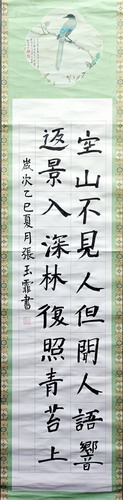 空山不見人但聞人語響
返景入深林復照青苔上
歲次乙巳夏月張玉霏書